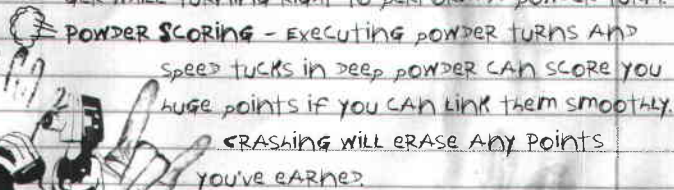 POWDER SCORING - EXECUTING POWDER TURNS AND
SPEED TUCKS IN DEEP POWDER CAN SCORE YOU
HUGE POINTS IF YOU CAN LINK THEM SMOOTHLY.
CRASHING WILL ERASE ANY POINTS
YOU'VE EARNED.